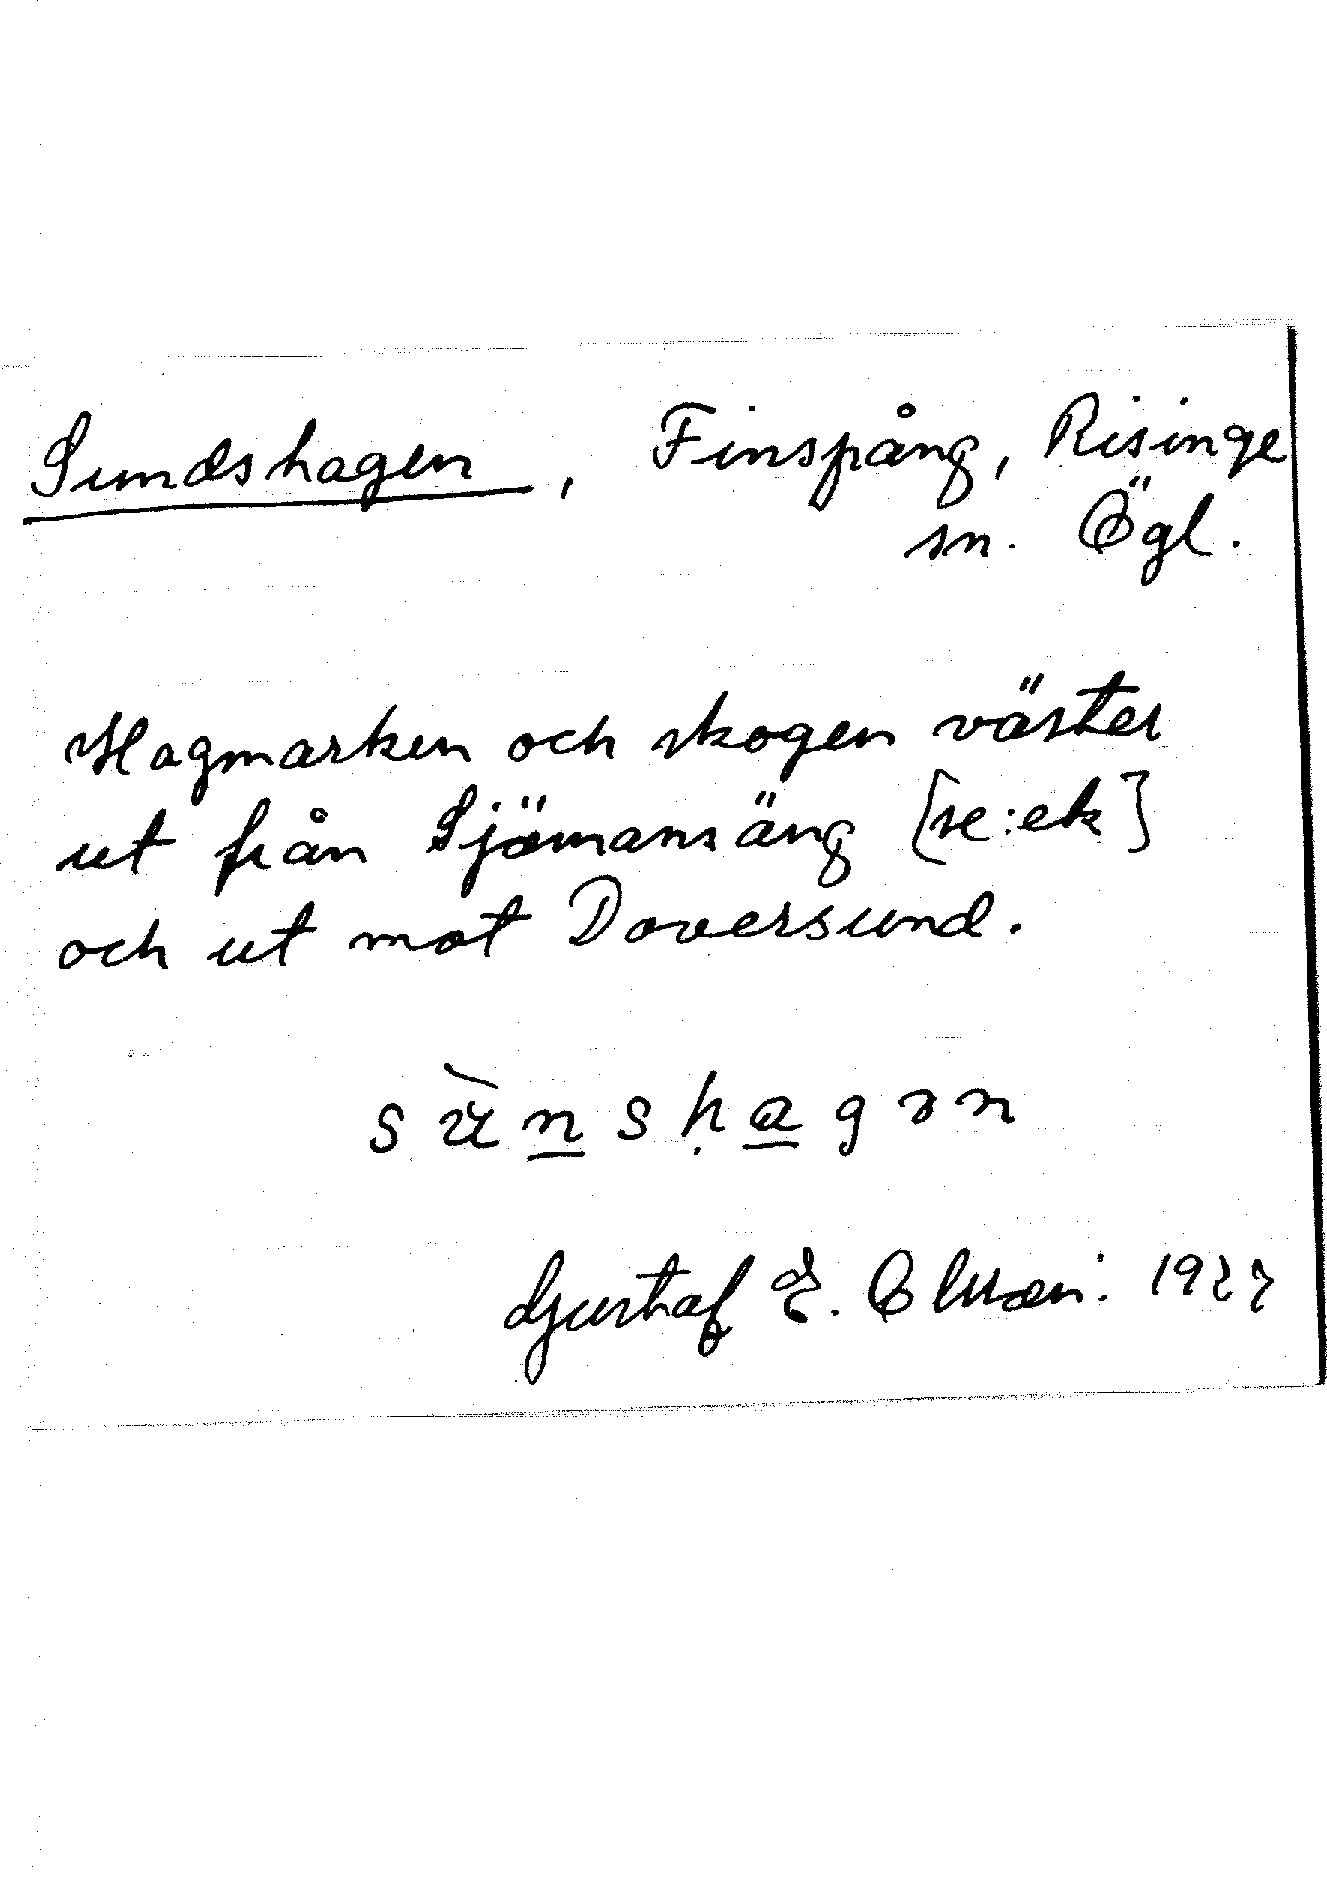 Sundshagen, Finspång, Risinge
sn. Ögl.
Hagmarken och skogen väster
ut från Sjömansäng [se: ek]
och ut mot Doversund.
sùn̲sḥa̲gən
Gustaf E. Olsson. 1927